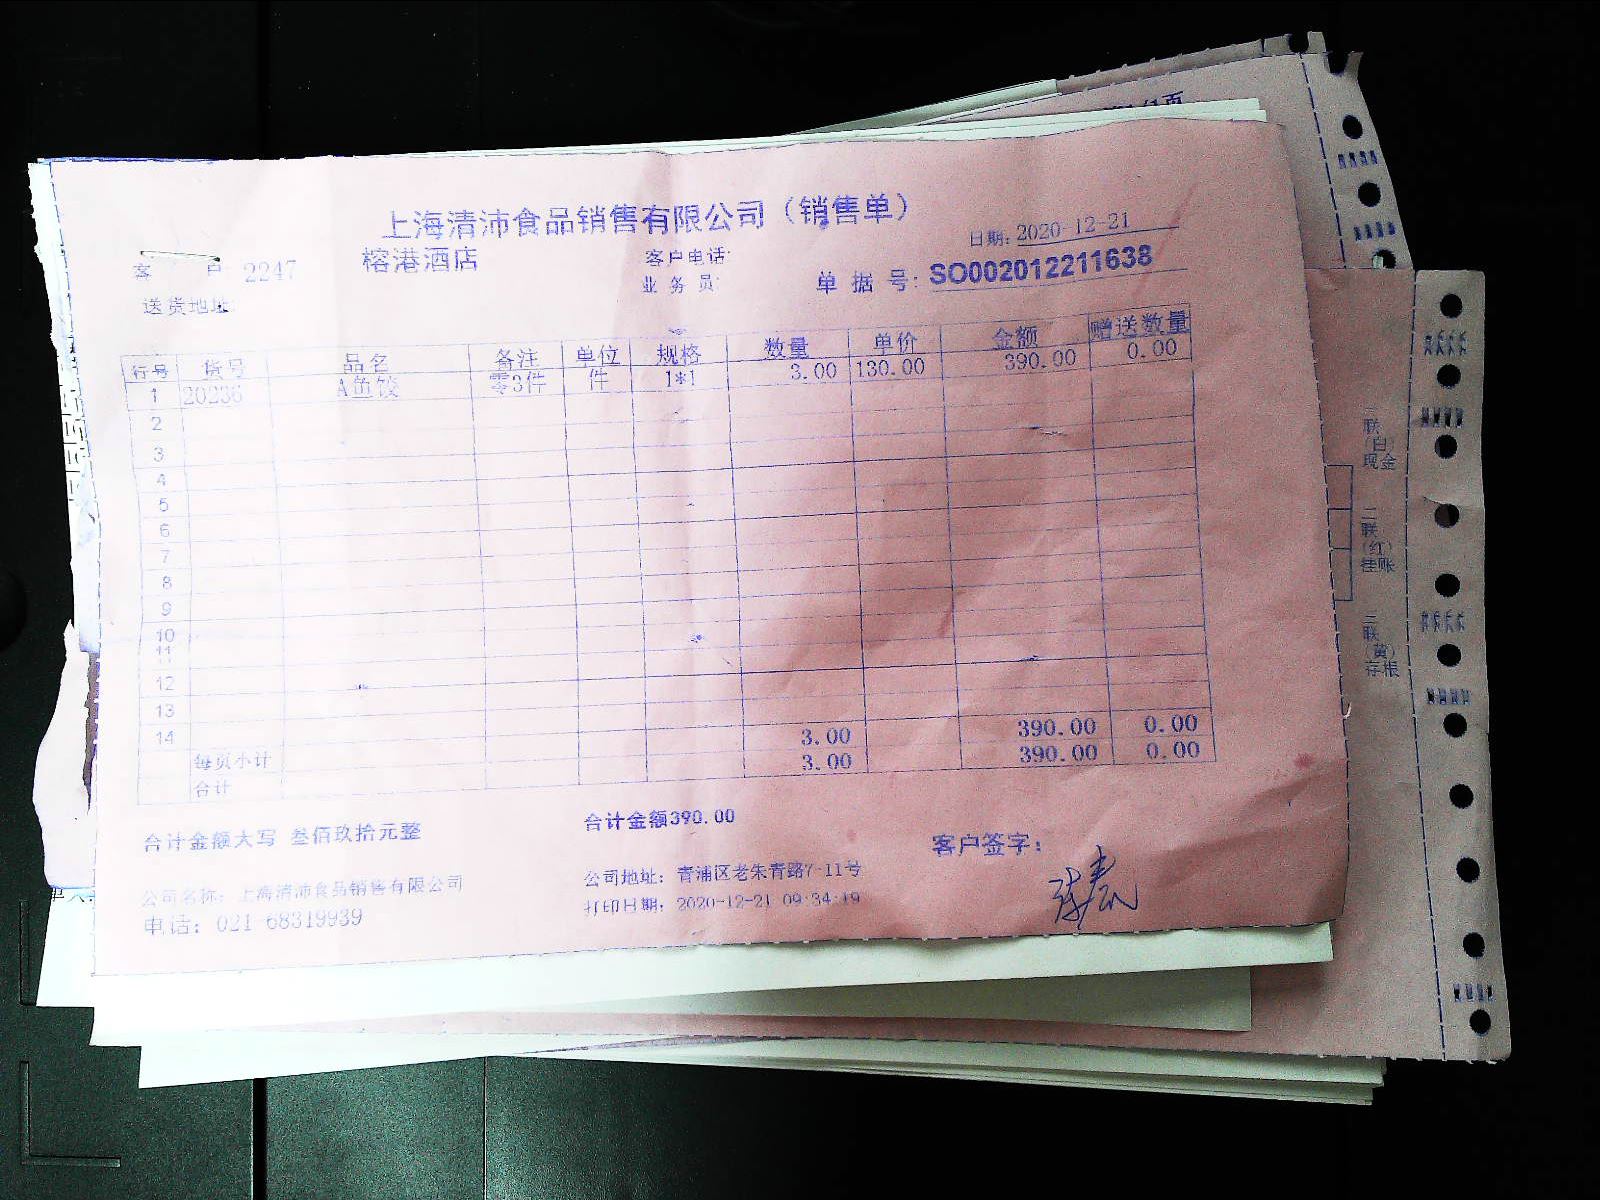 上海清沛食品销售有限公司（销售单）
日期: 2020-12-21
客 户: 2247 榕港酒店 客户电话:
业 务 员: 单 据 号: SO002012211638
送货地址:
行号 货号 品名 备注 单位 规格 数量 单价 金额 赠送数量
1 20236 A鱼饺 零3件 件 1*1 3.00 130.00 390.00 0.00
2
3
4
5
6
7
8
9
10
11
12
13
14
每页小计 3.00 390.00 0.00
合计 3.00 390.00 0.00
合计金额大写 叁佰玖拾元整 合计金额390.00
客户签字:
公司名称: 上海清沛食品销售有限公司 公司地址: 青浦区老朱青路7-11号
电话: 021-68319939 打印日期: 2020-12-21 09:34:19
一联（白）现金
二联（红）挂账
三联（黄）存根